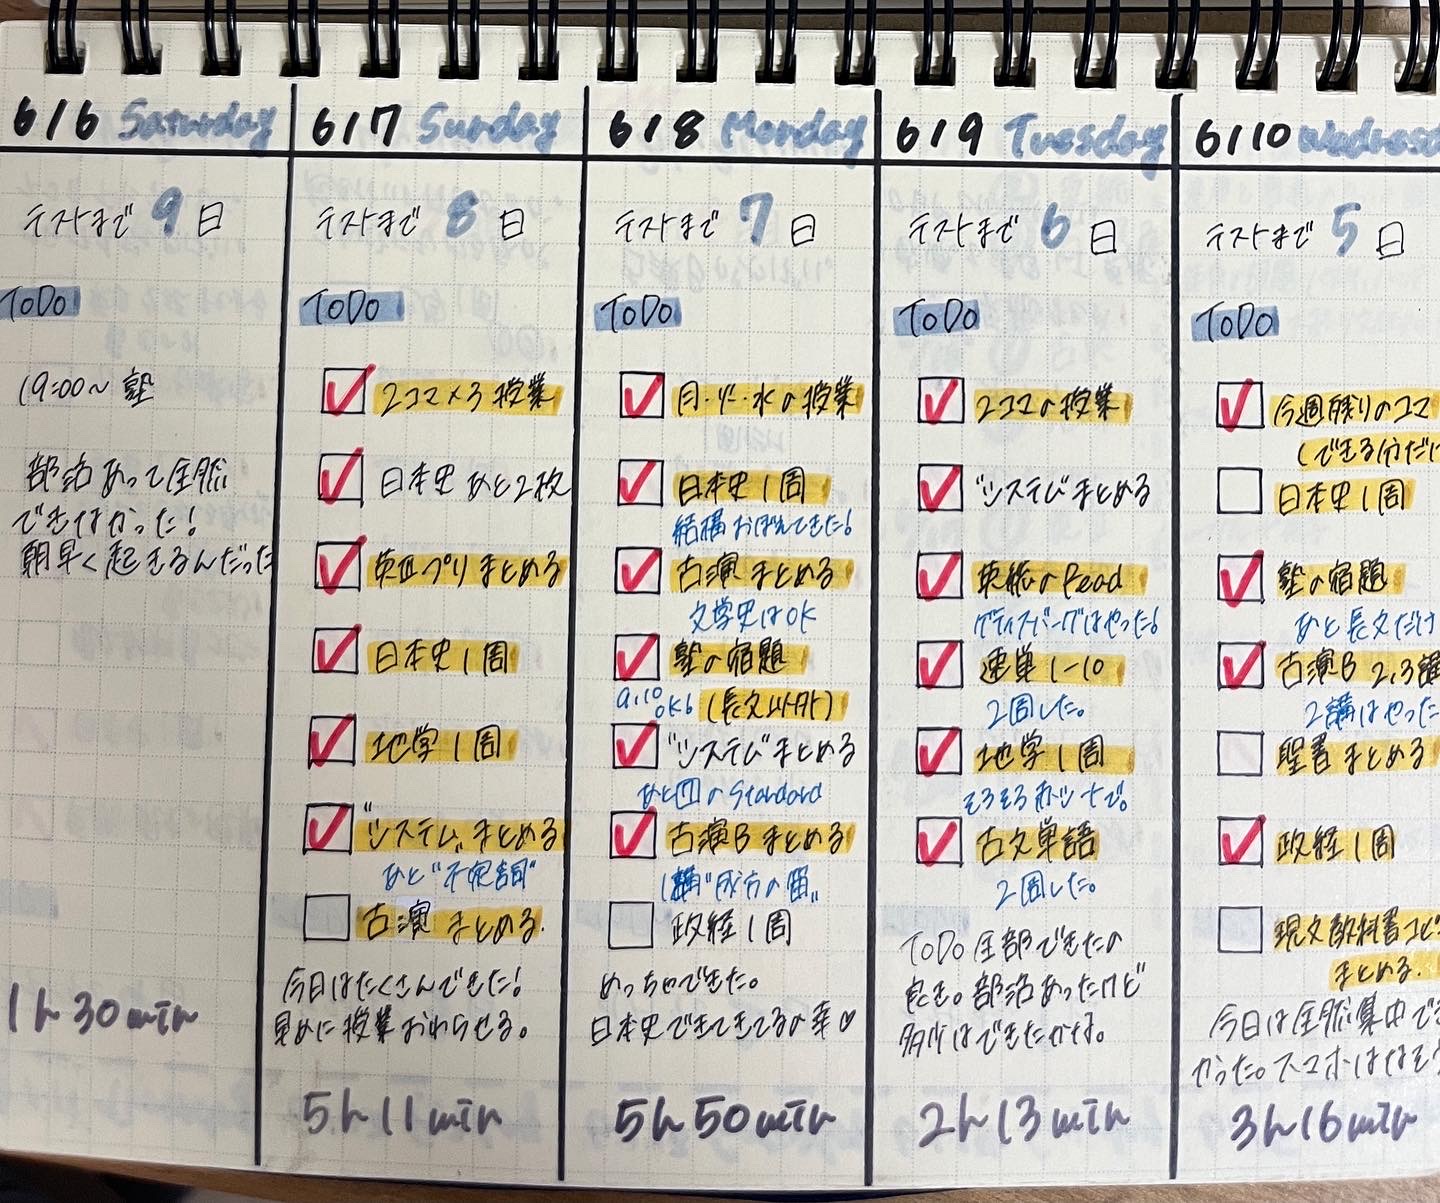 6/6 Saturday
テストまで 9 日
ToDo
19:00~ 塾
部活あって全然
できなかった!
朝早く起きるんだった
1h 30min
6/7 Sunday
テストまで 8 日
ToDo
2コマ×3 授業
日本史 あと2枚
プリまとめる
日本史1周
地学1周
"システム"まとめる
あと
古演 まとめる.
今日はたくさんできた!
早めに授業おわらせる。
5h 11min
6/8 Monday
テストまで 7 日
ToDo
月・火・水の授業
日本史1周
結構おぼえてきた!
古演まとめる
文学史はOK
塾の宿題
9,10 OK! (長文以外)
"システム"まとめる
あと のStandard
古演Bまとめる
1講
政経1周
めっちゃできた。
日本史できてきてるの幸♡
5h 50min
6/9 Tuesday
テストまで 6 日
ToDo
2コマの授業
"システム"まとめる
のRead
ゲティスバーグはやった!
速単1-10
2回した。
地学1周
そろそろ で。
古文単語
2回した。
ToDo全部できたの
良き。部活あったけど
多少はできたかな。
2h 13min
6/10 Wednesd
テストまで 5 日
ToDo
今週残りのコマ
(できる分だけ
日本史1周
塾の宿題
あと長文だけ
古演B 2,3講
2講はやった
聖書まとめる
政経1周
現文教科書
まとめる.
今日は全然集中でき
かった。スマホはなそう
3h 16min